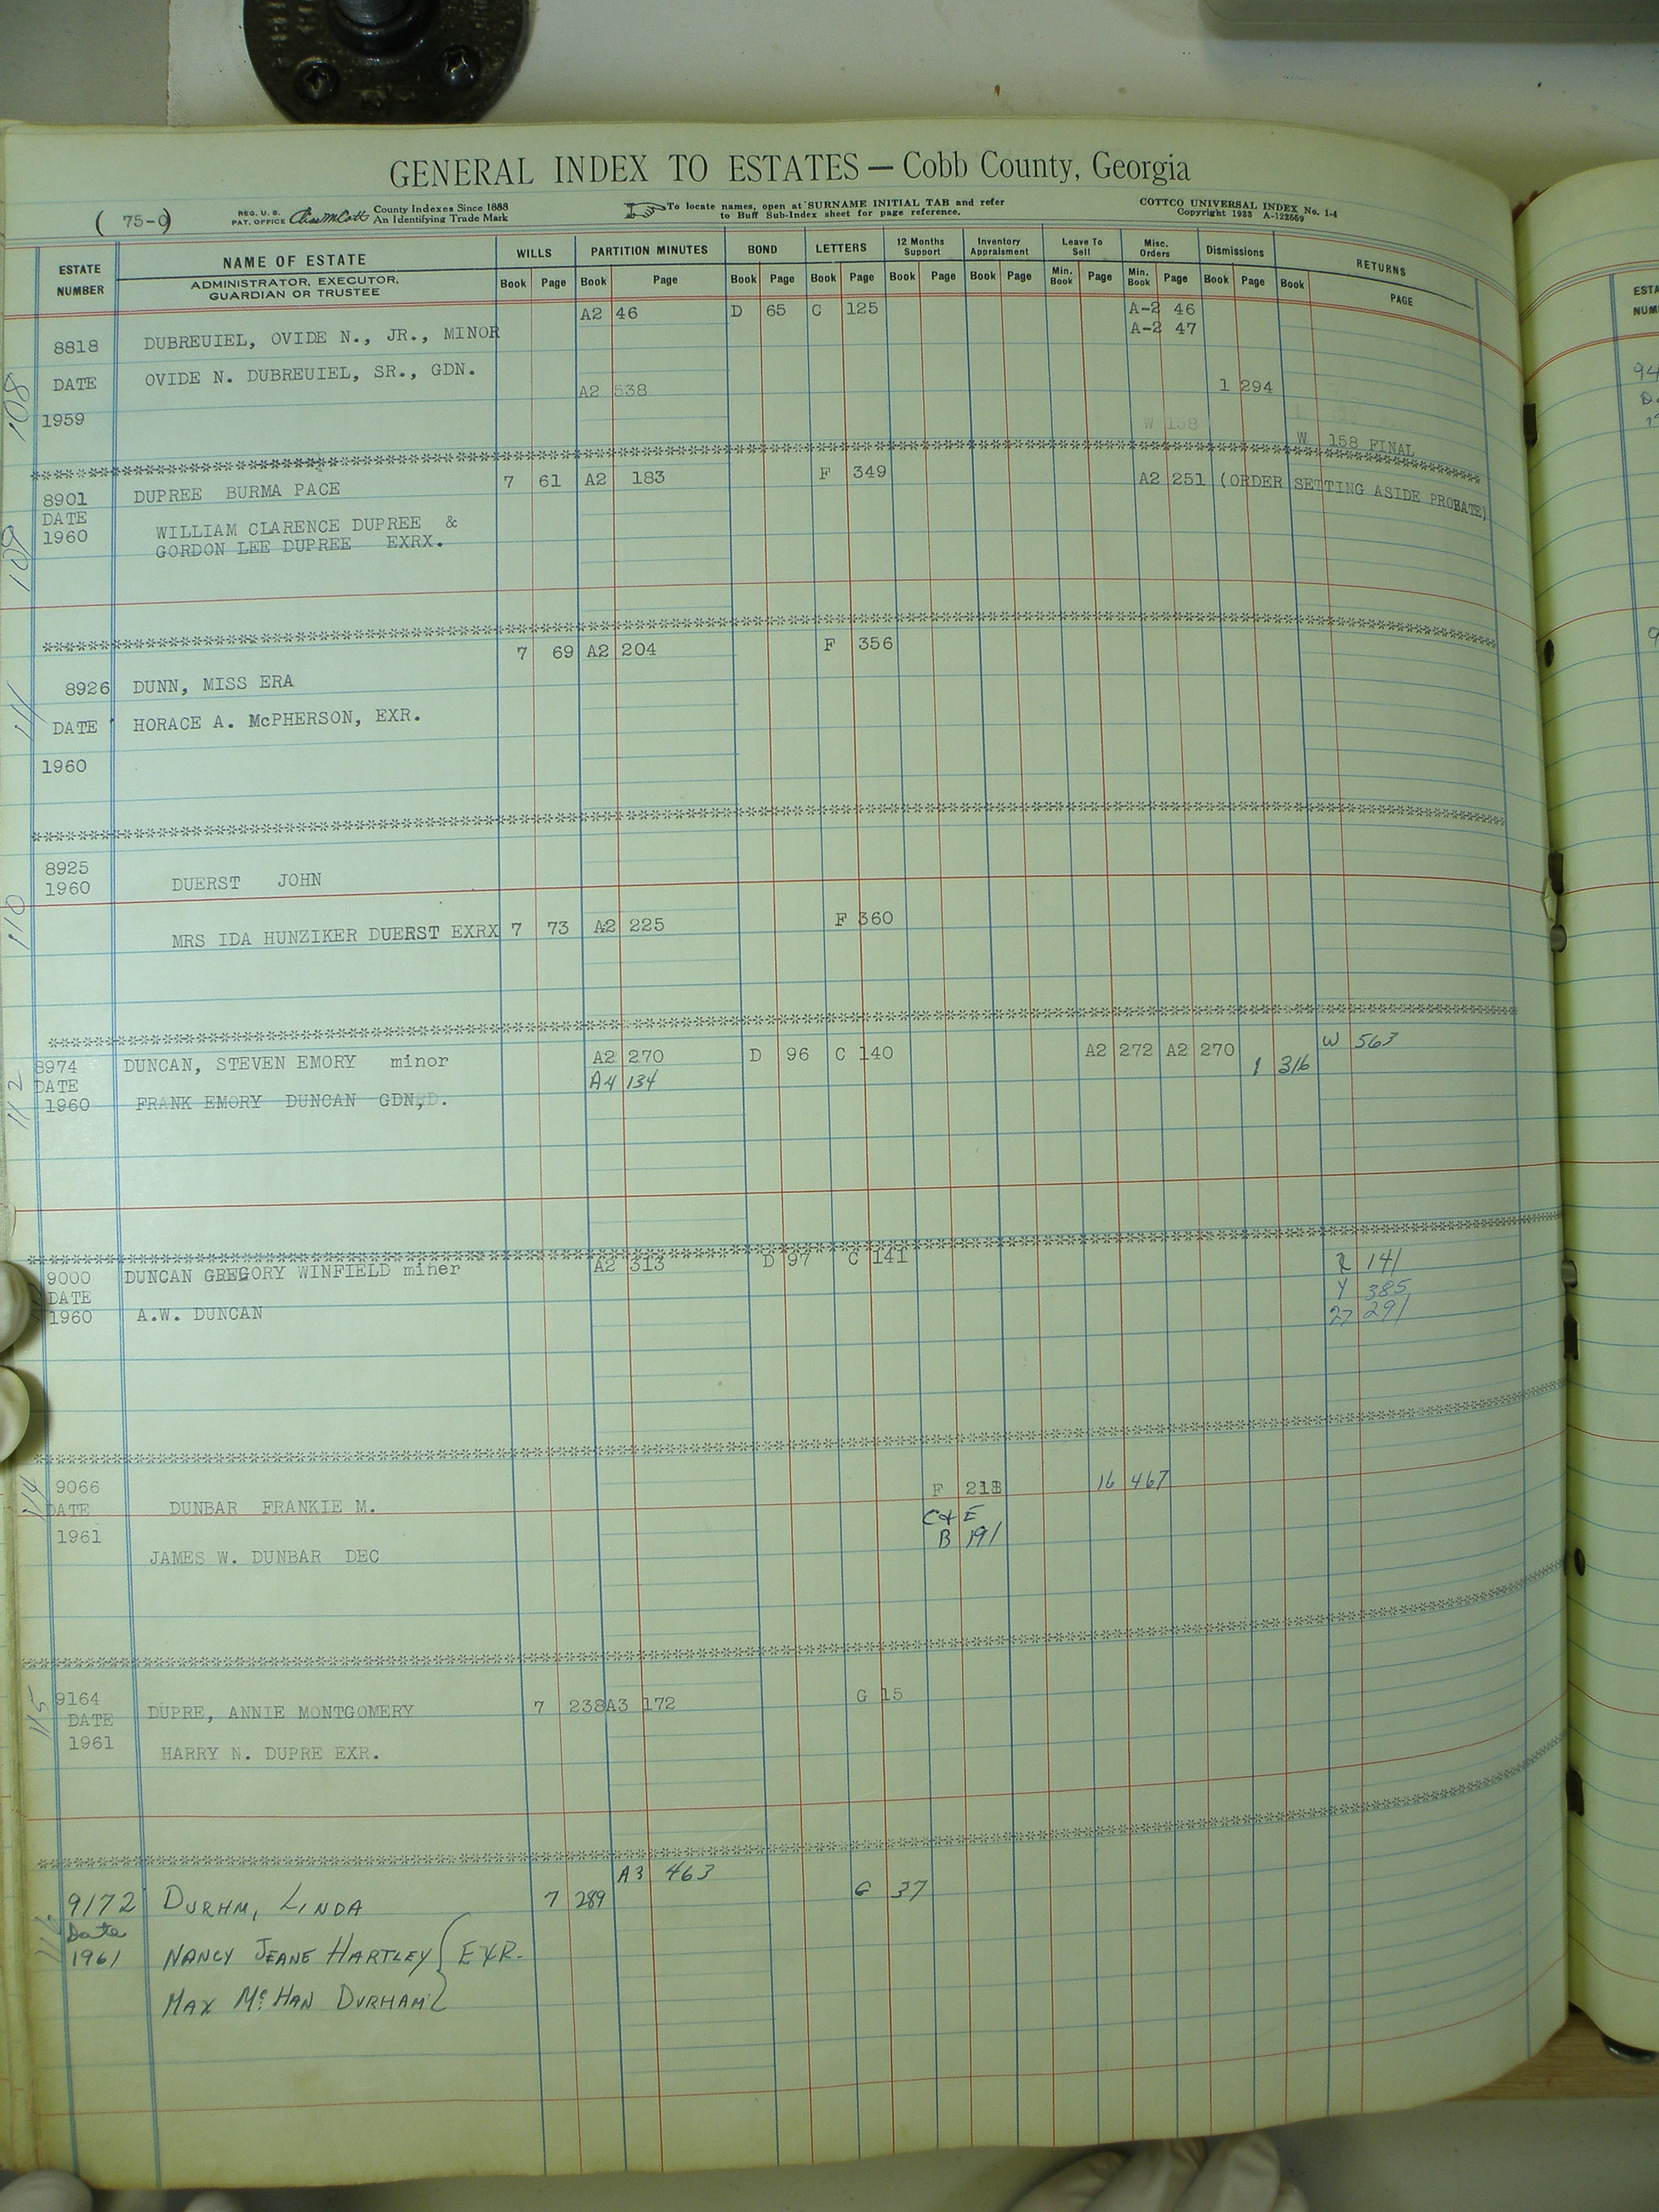 GENERAL INDEX TO ESTATES — Cobb County, Georgia
( 75-0)
REG. U. S. PAT. OFFICE
County Indexes Since 1888
An Identifying Trade Mark
To locate names, open at SURNAME INITIAL TAB and refer
to Buff Sub-Index sheet for page reference.
COTTCO UNIVERSAL INDEX No. 1-4
Copyright 1933 A-122669
ESTATE NUMBER
NAME OF ESTATE
ADMINISTRATOR, EXECUTOR,
GUARDIAN OR TRUSTEE
WILLS PARTITION MINUTES BOND LETTERS 12 Months Support Inventory Appraisment Leave To Sell Misc. Orders Dismissions RETURNS
Book Page Book Page Book Page Book Page Book Page Book Page Min. Book Page Min. Book Page Book Page Book PAGE
A2 46 D 65 C 125 A-2 46
A-2 47
108
8818 DUBREUIEL, OVIDE N., JR., MINOR
DATE OVIDE N. DUBREUIEL, SR., GDN.
A2 538 1 294
1959
W 158
W 158 FINAL
109
8901 DUPREE BURMA PACE 7 61 A2 183 F 349 A2 251 (ORDER SETTING ASIDE PROBATE)
DATE
1960 WILLIAM CLARENCE DUPREE &
GORDON LEE DUPREE EXRX.
7 69 A2 204 F 356
111
8926 DUNN, MISS ERA
DATE HORACE A. McPHERSON, EXR.
1960
8925
1960 DUERST JOHN
110
MRS IDA HUNZIKER DUERST EXRX 7 73 A2 225 F 360
112
8974 DUNCAN, STEVEN EMORY minor A2 270 D 96 C 140 A2 272 A2 270 1 316 W 563
DATE A4 134
1960 FRANK EMORY DUNCAN GDN,
9000 DUNCAN GREGORY WINFIELD miner A2 313 D 97 C 141 141
DATE Y 385
1960 A.W. DUNCAN 27 291
114
9066 F 16 467
DATE DUNBAR FRANKIE M. C & E
1961 B 191
JAMES W. DUNBAR DEC
115
9164 DUPRE, ANNIE MONTGOMERY 7 238 A3 172 G 15
DATE
1961 HARRY N. DUPRE EXR.
A3 463
9172 DURHM, LINDA 7 289 G 37
Date
1961 NANCY JEANE HARTLEY } EXR.
MAX McHAN DURHAM